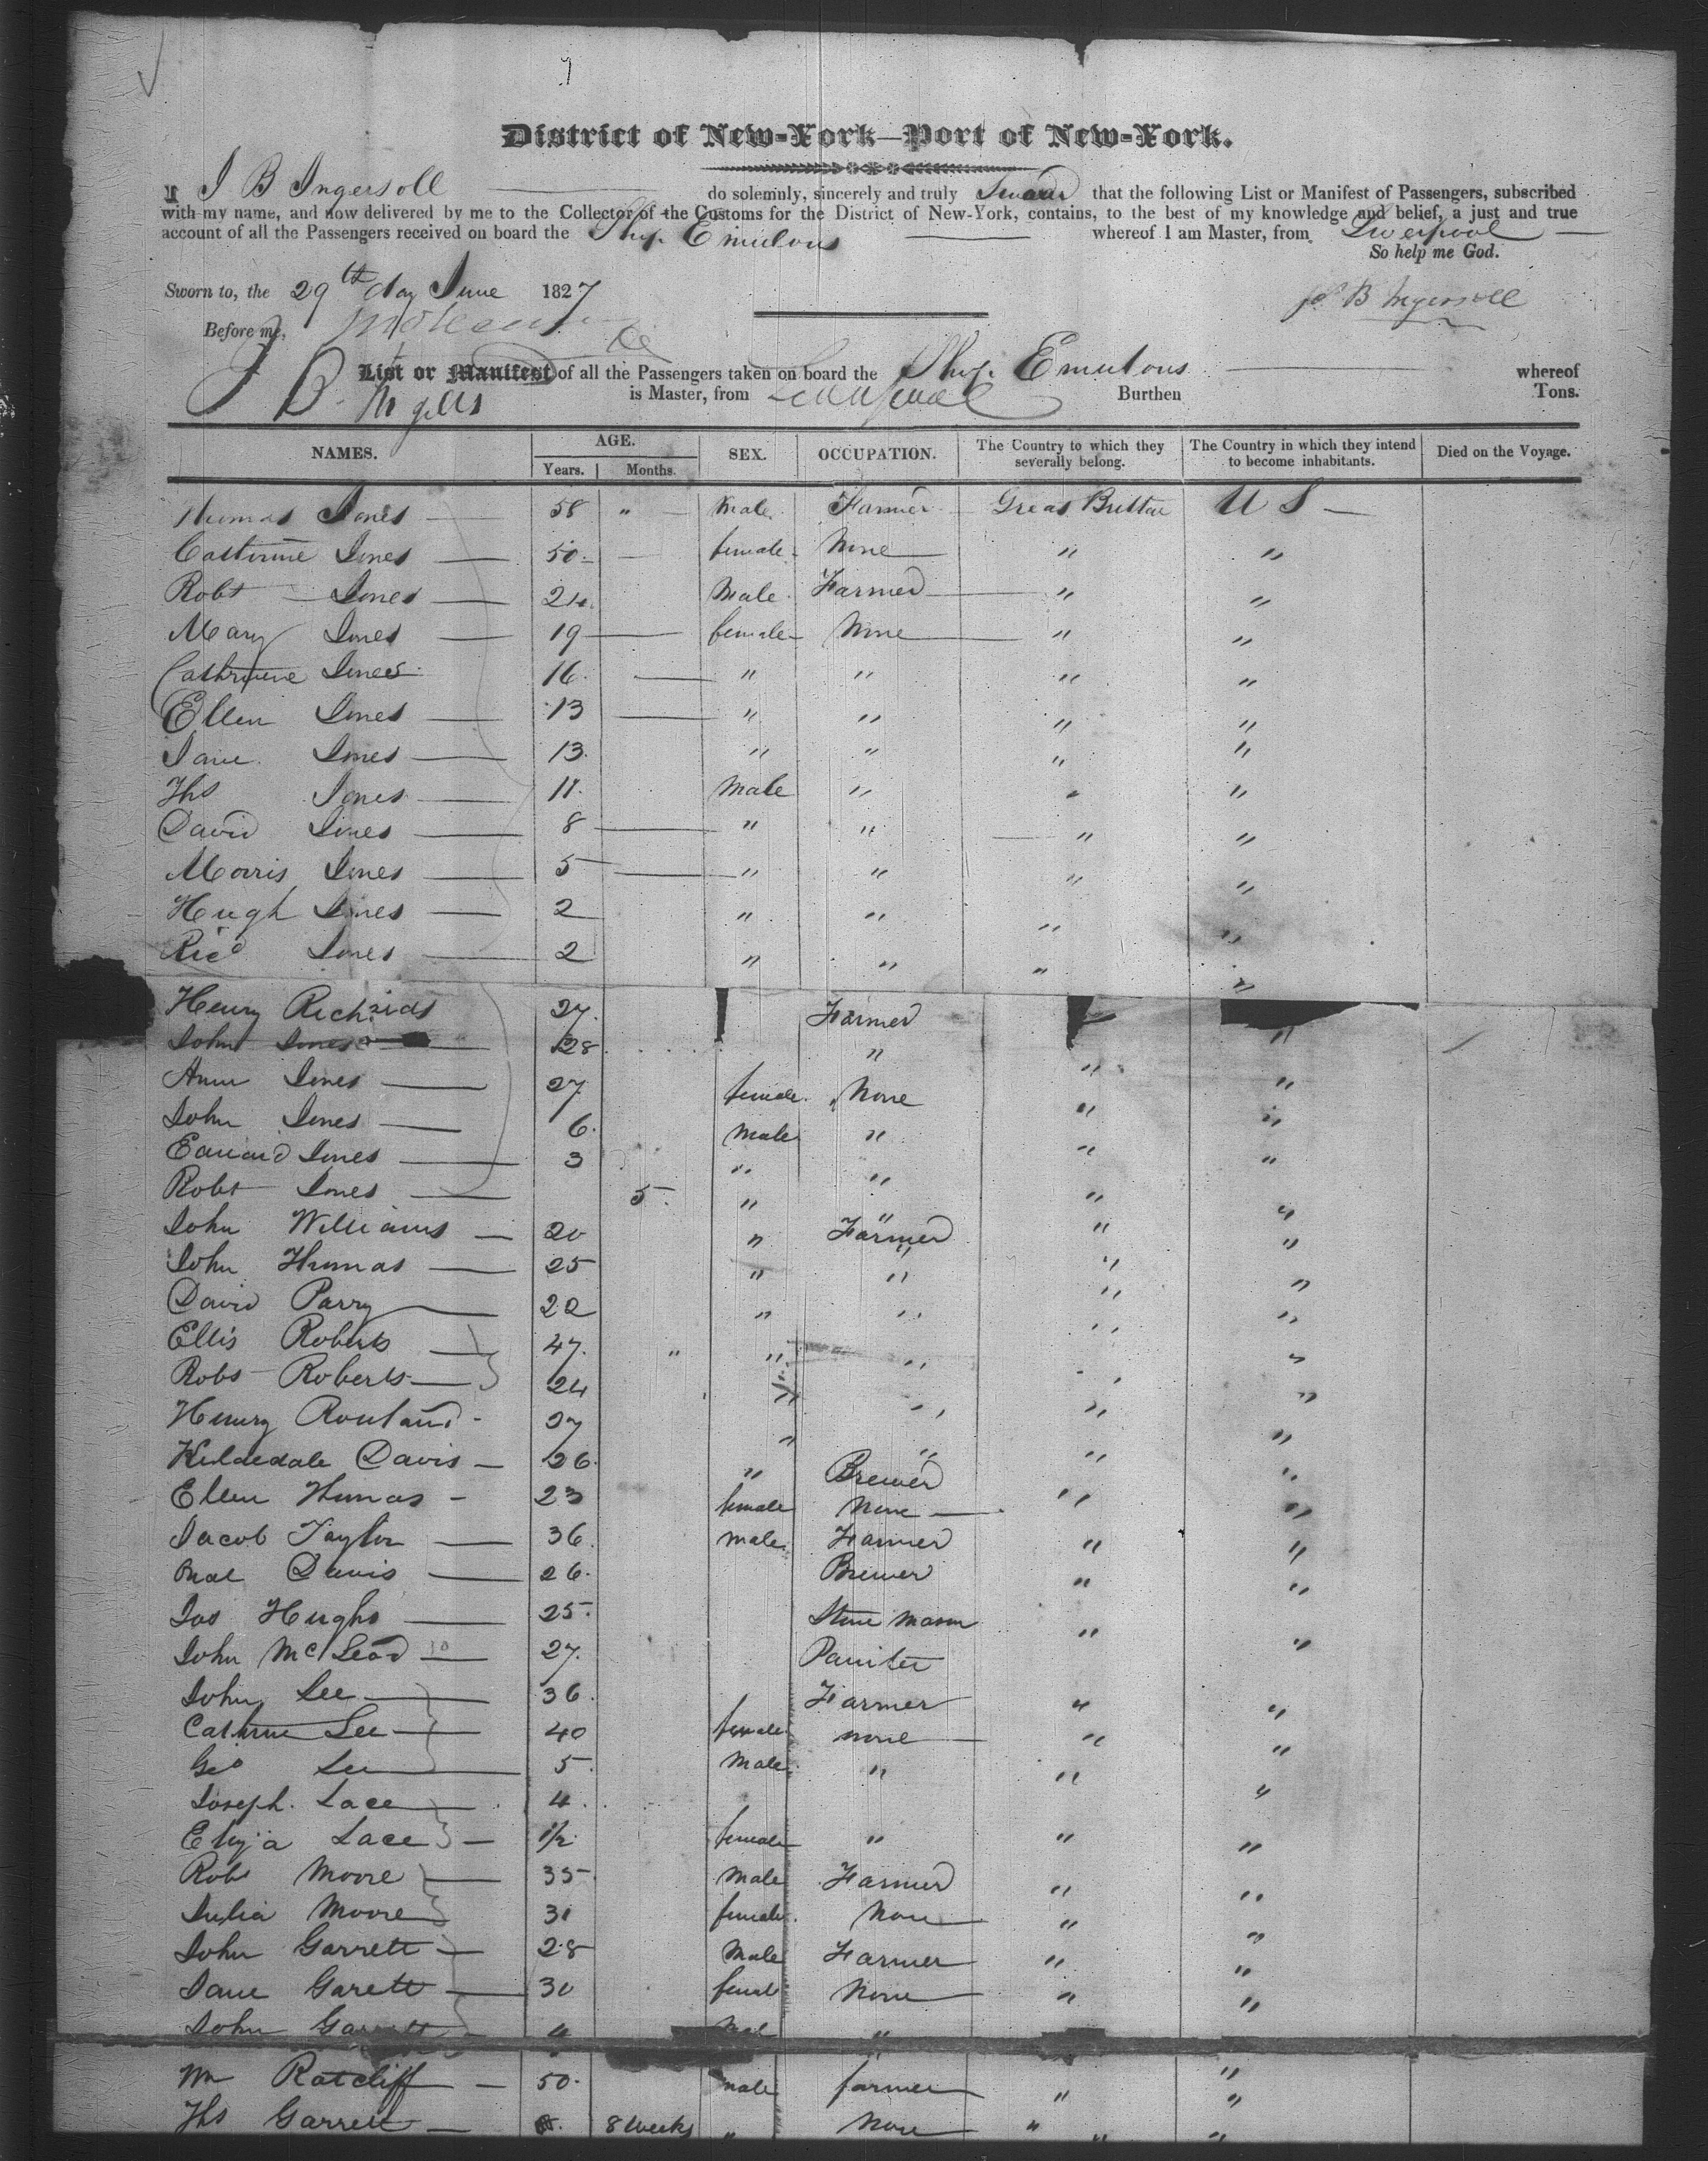 District of New-York—Port of New-York.
I J B Ingersoll do solemnly, sincerely and truly Swear that the following List or Manifest of Passengers, subscribed
with my name, and now delivered by me to the Collector of the Customs for the District of New-York, contains, to the best of my knowledge and belief, a just and true
account of all the Passengers received on board the Ship Emulous whereof I am Master, from Liverpool
So help me God.
Sworn to, the 29th day June 1827
J. B Ingersoll
Before me,
List or Manifest of all the Passengers taken on board the Ship Emulous whereof
J B is Master, from Liverpool Burthen Tons.
NAMES. AGE. SEX. OCCUPATION. The Country to which they severally belong. The Country in which they intend to become inhabitants. Died on the Voyage.
Years. Months.
Thomas Jones 58 " Male Farmer Great Brittan U S
Catherine Jones 50 female None " "
Robt Jones 24 Male Farmer " "
Mary Jones 19 female None " "
Cathrine Jones 16 " " " "
Ellen Jones 13 " " " "
Jane Jones 13 " " " "
Ths Jones 11 Male " " "
David Jones 8 " " " "
Morris Jones 5 " " " "
Hugh Jones 2 " " " "
Ricd Jones 2 " " " "
Henry Richards 27 Farmer
John Jones 28 " " "
Ann Jones 27 female None " "
John Jones 6 Male " " "
Edward Jones 3 " " " "
Robt Jones 5 " " " "
John Williams 20 " Farmer " "
John Thomas 25 " " " "
David Parry 22 " " " "
Ellis Roberts 47 " " " " "
Robt Roberts 24 " " " "
Henry Rowland 27 " " " "
Davis 26 " Brewer " "
Ellen Thomas 23 female None " "
Jacob Taylor 36 male Farmer " "
Davis 26 Brewer " "
Jos Hughs 25 Stone Mason " "
John McLeod 10 27 Painter
John Lee 36 Farmer " "
Cathrine Lee 40 female none " "
Geo Lee 5 Male " " "
Joseph Lace 4
Eliza Lace 1/2 female " " "
Robt Moore 35 Male Farmer " "
Julia Moore 31 female None " "
John Garrett 28 Male Farmer " "
Jane Garett 30 female None " "
John Garrett 4 Male "
Wm Ratcliff 50 male farmer " "
Ths Garrett 8 Weeks " None " " "